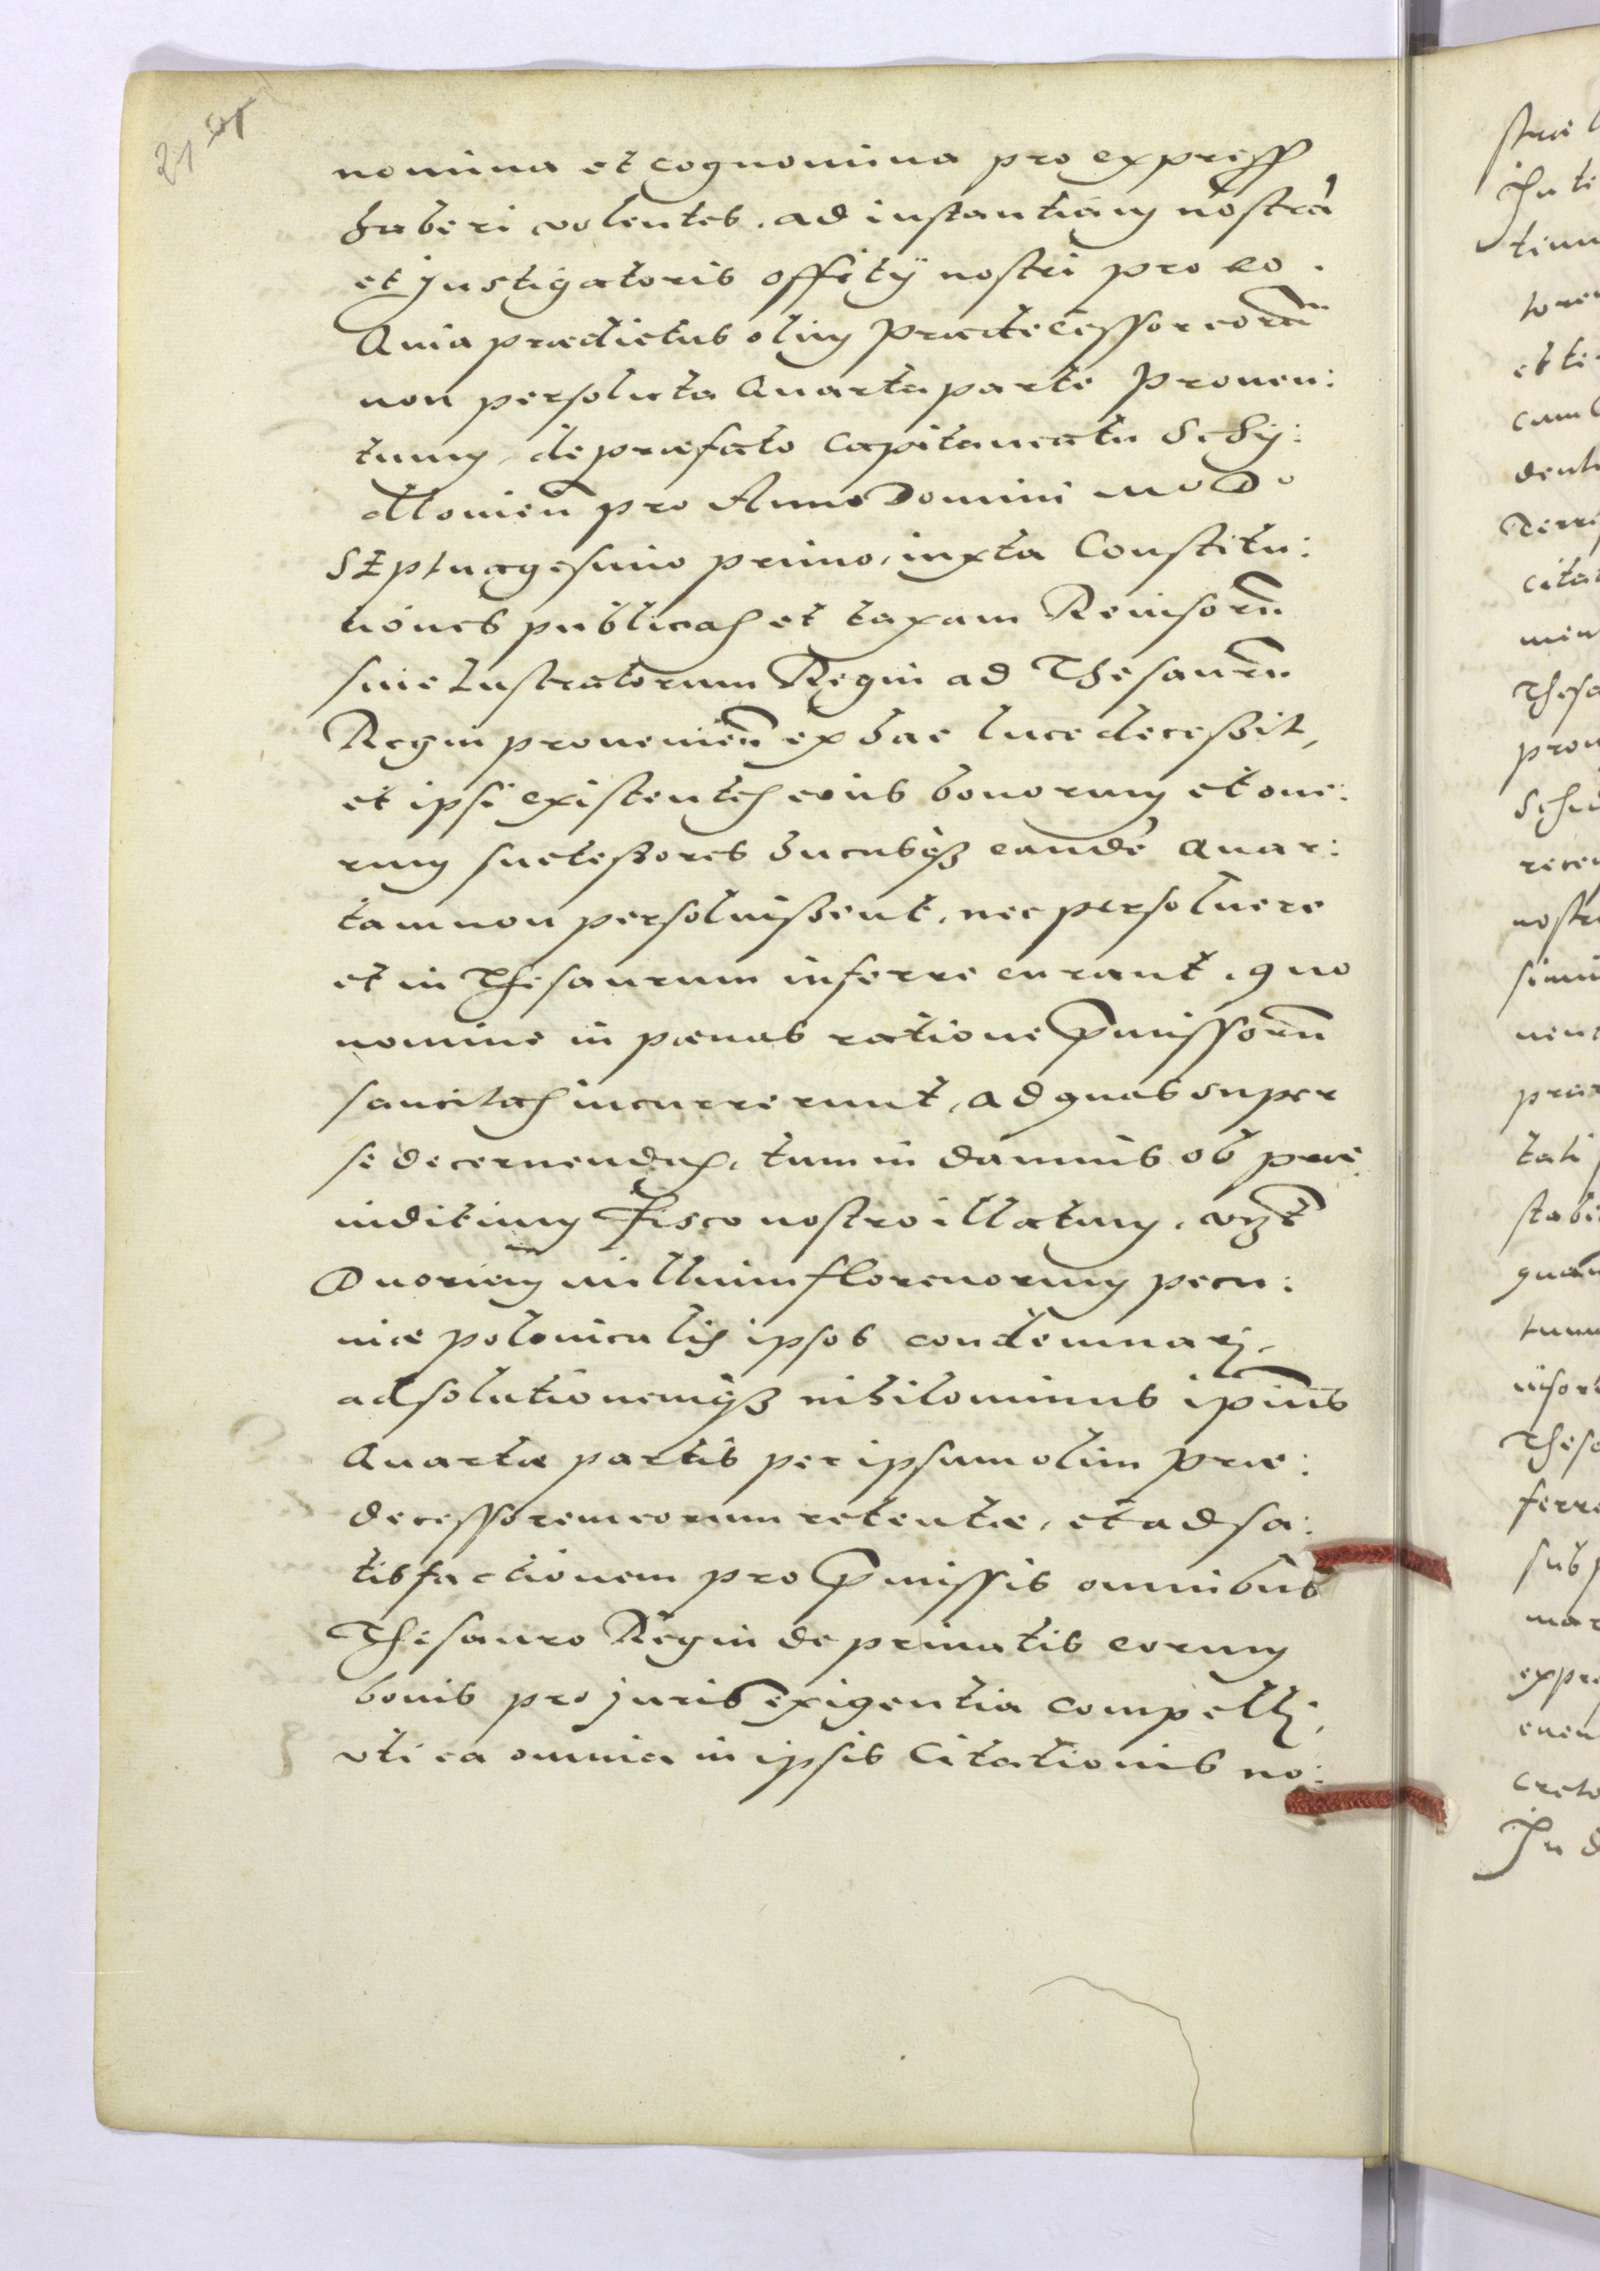 21
nomina et cognomina pro express
haberi volentes, ad instantiam nostrā
et Instigatoris officij nostri pro eo.
Quia prædictus olim Prædecessor eorū
non persoluta Quarta parte Prouen:
tuum, de præfato Capitaneatu Schy:
dlouien̄ pro Anno Domini MoDo
Septuagesimo primo, iuxta Constitu:
tiones publicas et taxam Reuisorū
siue Lustratorum Regni ad Thesaurū
Regni prouenien̄ ex hac luce decessit,
et ipsi existentes eius bonorum et one:
rum successores hucusq3 eandē Quar:
tam non persoluissent, nec persoluere
et in Thesaurum inferre curant, quo
nomine in pænas ratione p̄missorū
sancitas incurrerunt, ad quas super
se decernendas, tum in damnis ob præ:
iuditium Fisco nostro illatum, vz̄t
Duorum millium florenorum pecu:
niæ polonicalis ipsos condemnari,
ad solutionemq3 nihilominus ip̄ius
Quartæ partis per ipsum olim Præ:
decessorem eorum retentæ, et ad sa:
tisfactionem pro p̄missis omnibus
Thesauro Regni de priuatis eorum
bonis pro juris exigentia compelli,
vti ea omnia in ipsis Citationis no:
In te
tore
cam
citat
Thesa
nostr
tali
Thes
ferre
sub
expre
In d